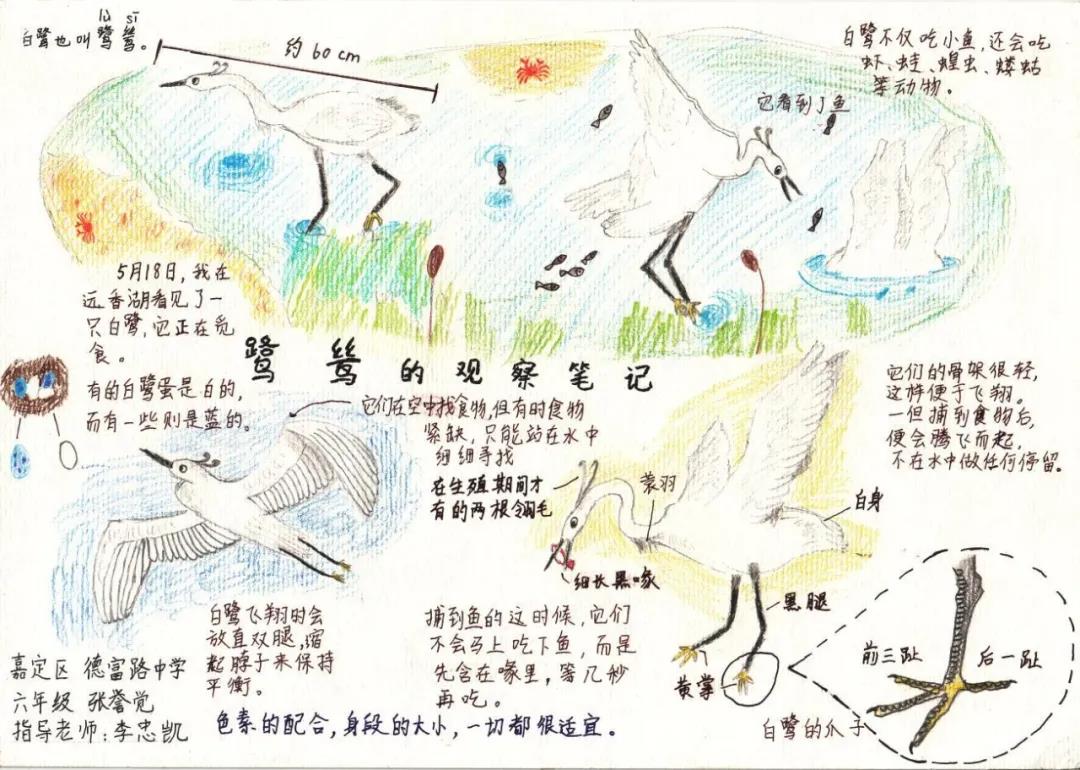 lù sī
白鹭也叫鹭鸶。
约60cm
白鹭不仅吃小鱼,还会吃
虾、蛙、蝗虫、蝼蛄
等动物。
它看到了鱼
5月18日,我在
远香湖看见了一
只白鹭,它正在觅
食。
鹭鸶的观察笔记
有的白鹭蛋是白的,
而有一些则是蓝的。
它们在空中找食物,但有时食物
紧缺,只能站在水中
细细寻找
在生殖期间才
有的两根翎毛
蓑羽
白身
细长黑喙
黑腿
黄掌
它们的骨架很轻,
这样便于飞翔。
一但捕到食物后,
便会腾飞而起,
不在水中做任何停留。
前三趾
后一趾
白鹭的爪子
白鹭飞翔时会
放直双腿,缩
起脖子来保持
平衡。
捕到鱼的这时候,它们
不会马上吃下鱼,而是
先含在喙里,等几秒
再吃。
嘉定区 德富路中学
六年级 张誉觉
指导老师:李忠凯
色素的配合,身段的大小,一切都很适宜。